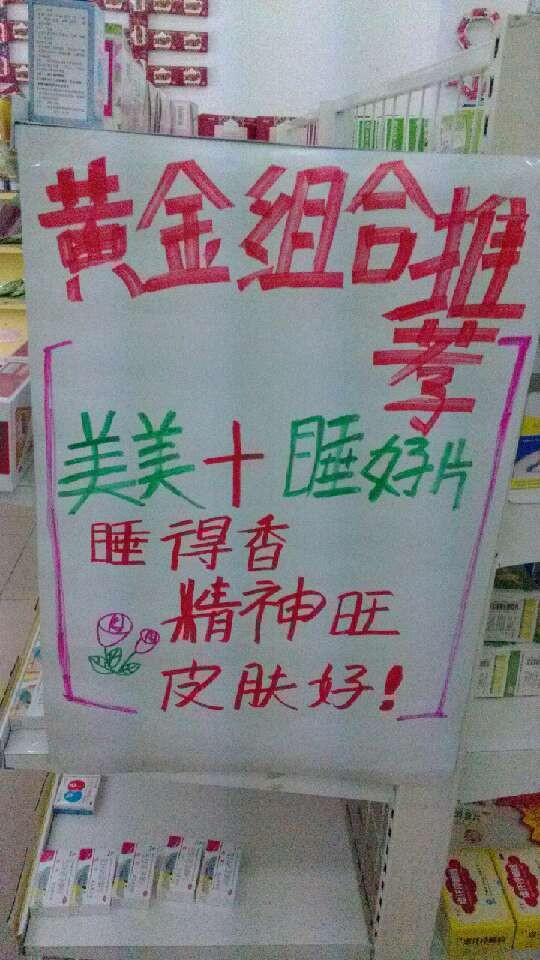 黄金组合推
荐
美美+睡好片
睡得香
精神旺
皮肤好!